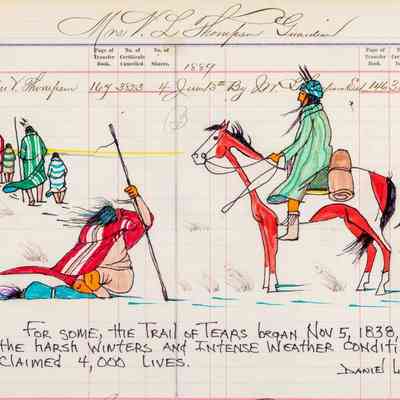 Mrs V. L Thompson Guardian
Page of Transfer Book. No. of Certificate Cancelled. No. of Shares. 1889 Page of Transfer Book. No. of Certificate Cancelled.
V. Thompson 167 4 June By 146
For some, the Trail of Tears began Nov 5, 1838,
the harsh winters and intense weather conditi
claimed 4,000 lives.
Daniel